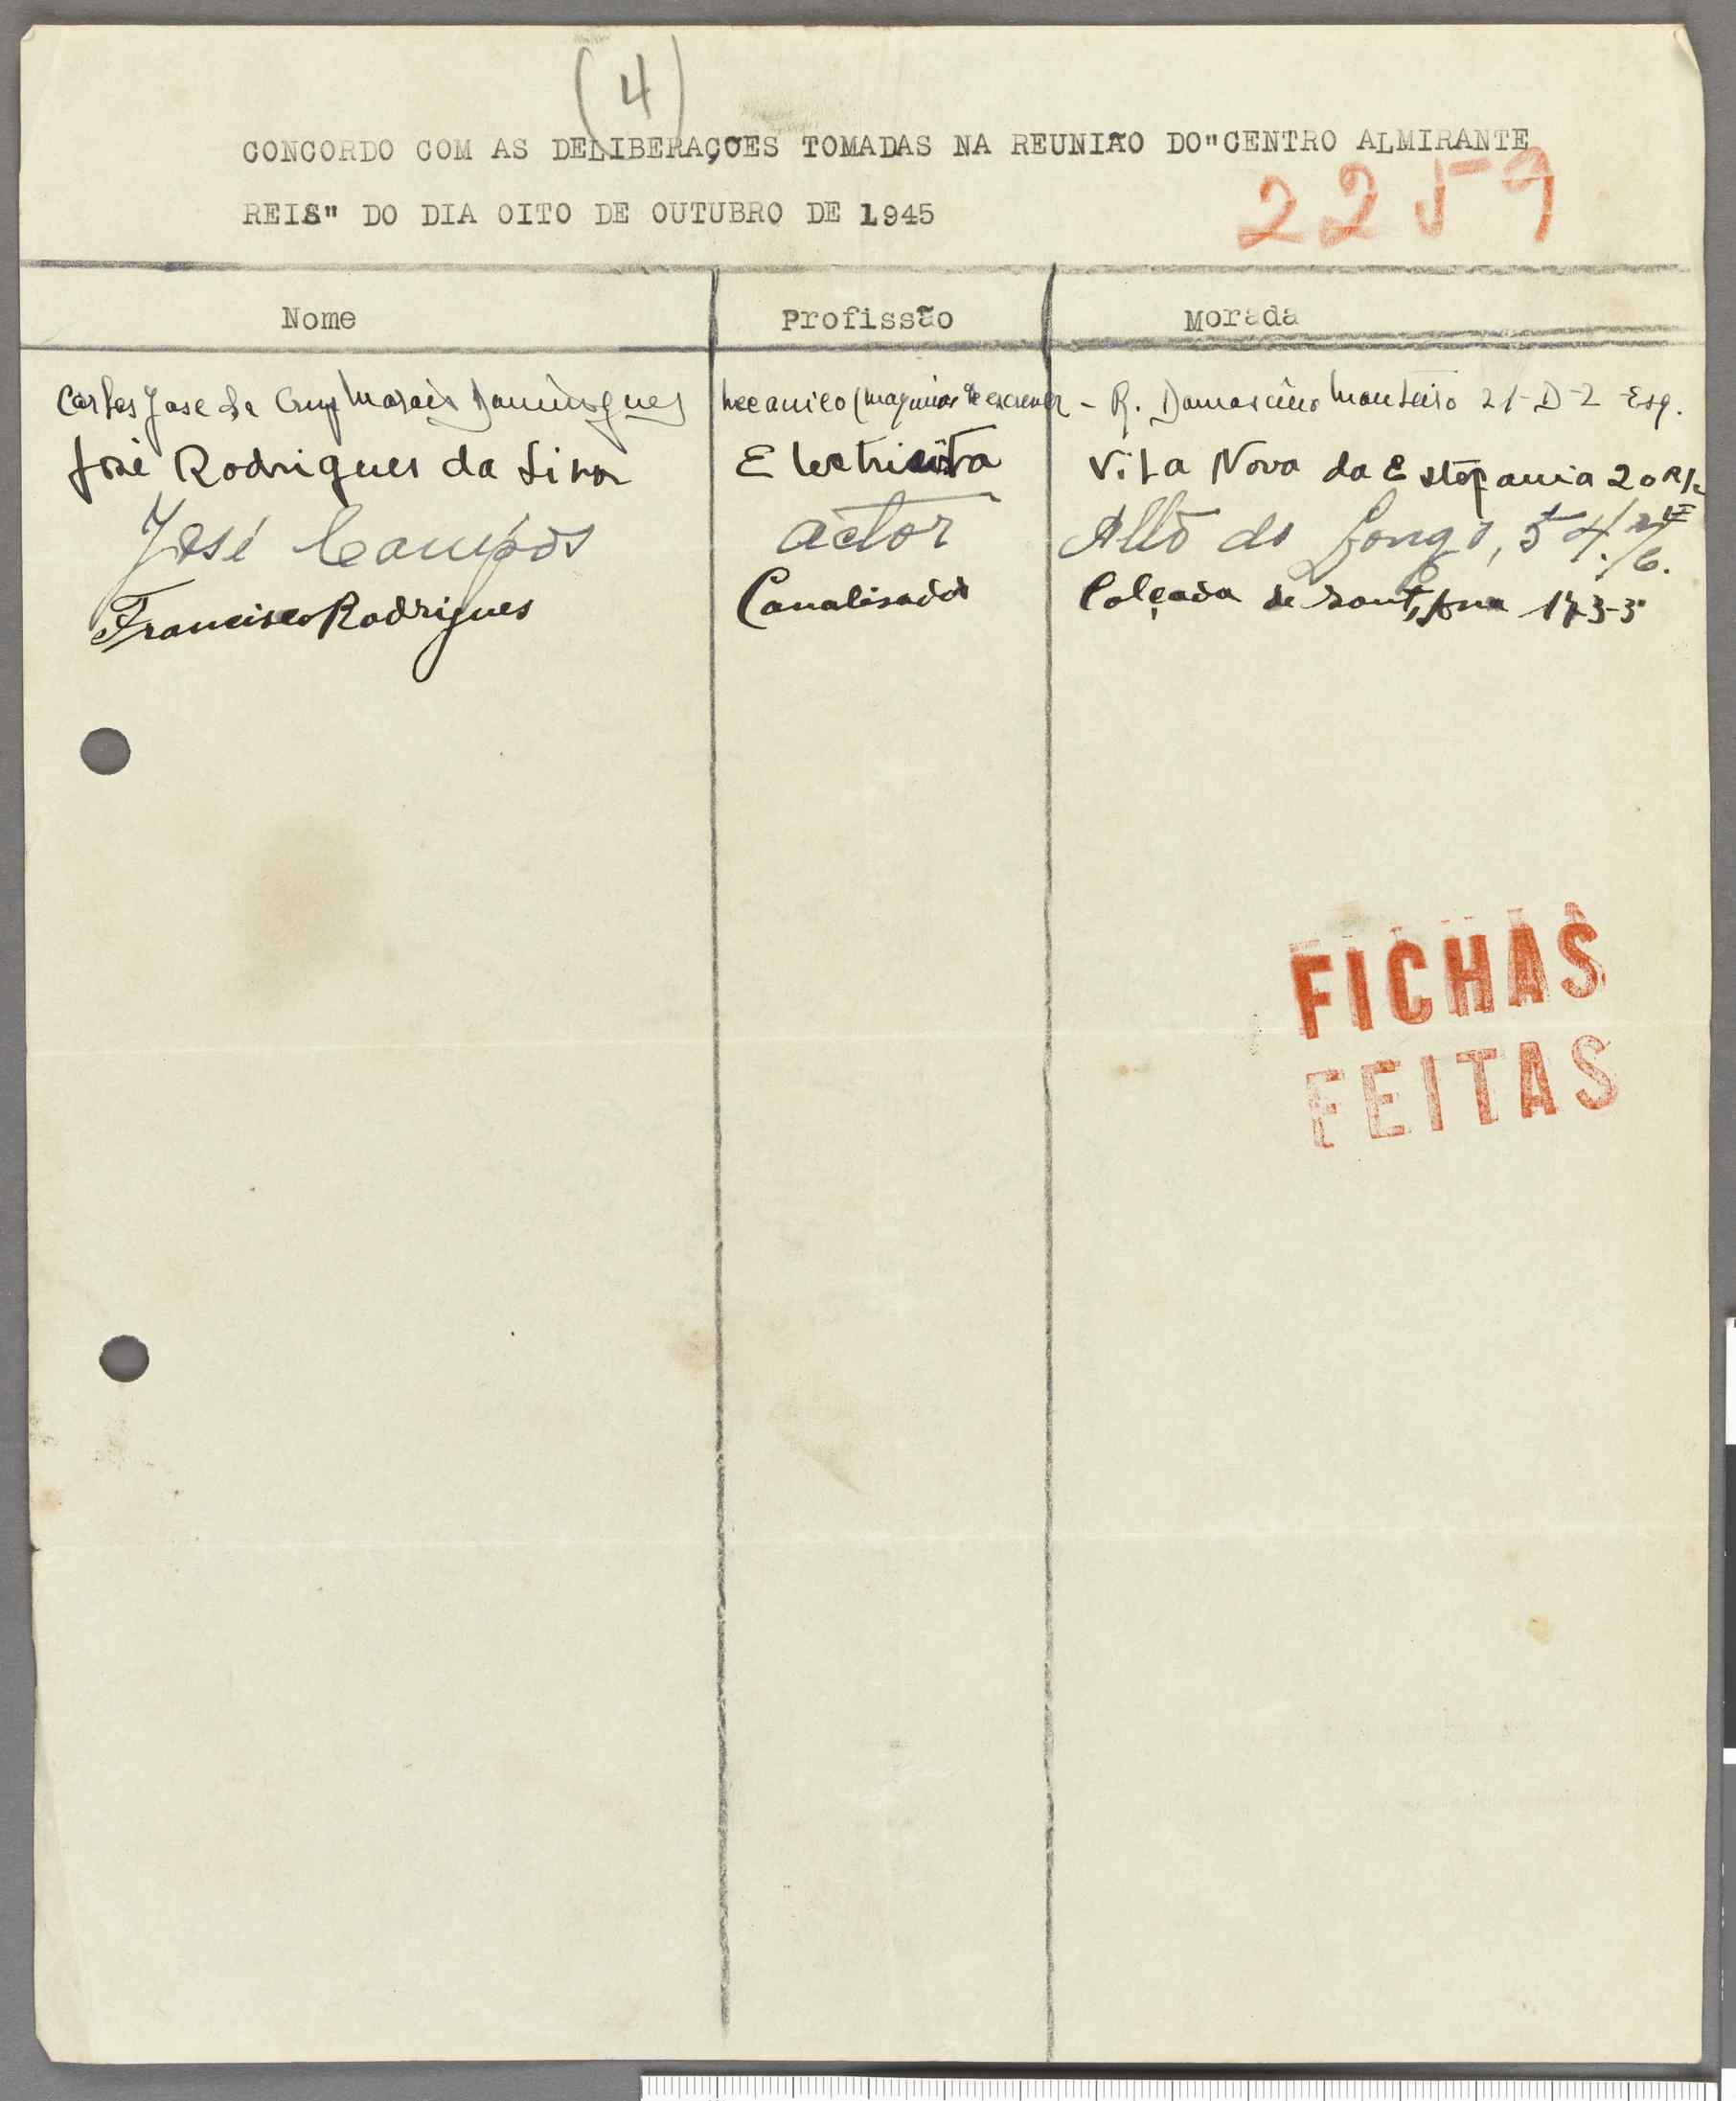 (4)
CONCORDO COM AS DELIBERAÇOES TOMADAS NA REUNIÃO DO "CENTRO ALMIRANTE
REIS" DO DIA OITO DE OUTUBRO DE 1945
2259
Nome Profissão Morada
Carlos Jose da Cruz Morais Domingues Mecanico (maquinas de escrever - R. Damasceno Monteiro 21-D-2 Esq.
José Rodrigues da Silva Electricista Vila Nova da Estefania 20 R/c
José Campos actor Alto do Longo, 54.
Francisco Rodrigues Canalisador Calçada de Sant'Ana 173-3º
FICHAS
FEITAS